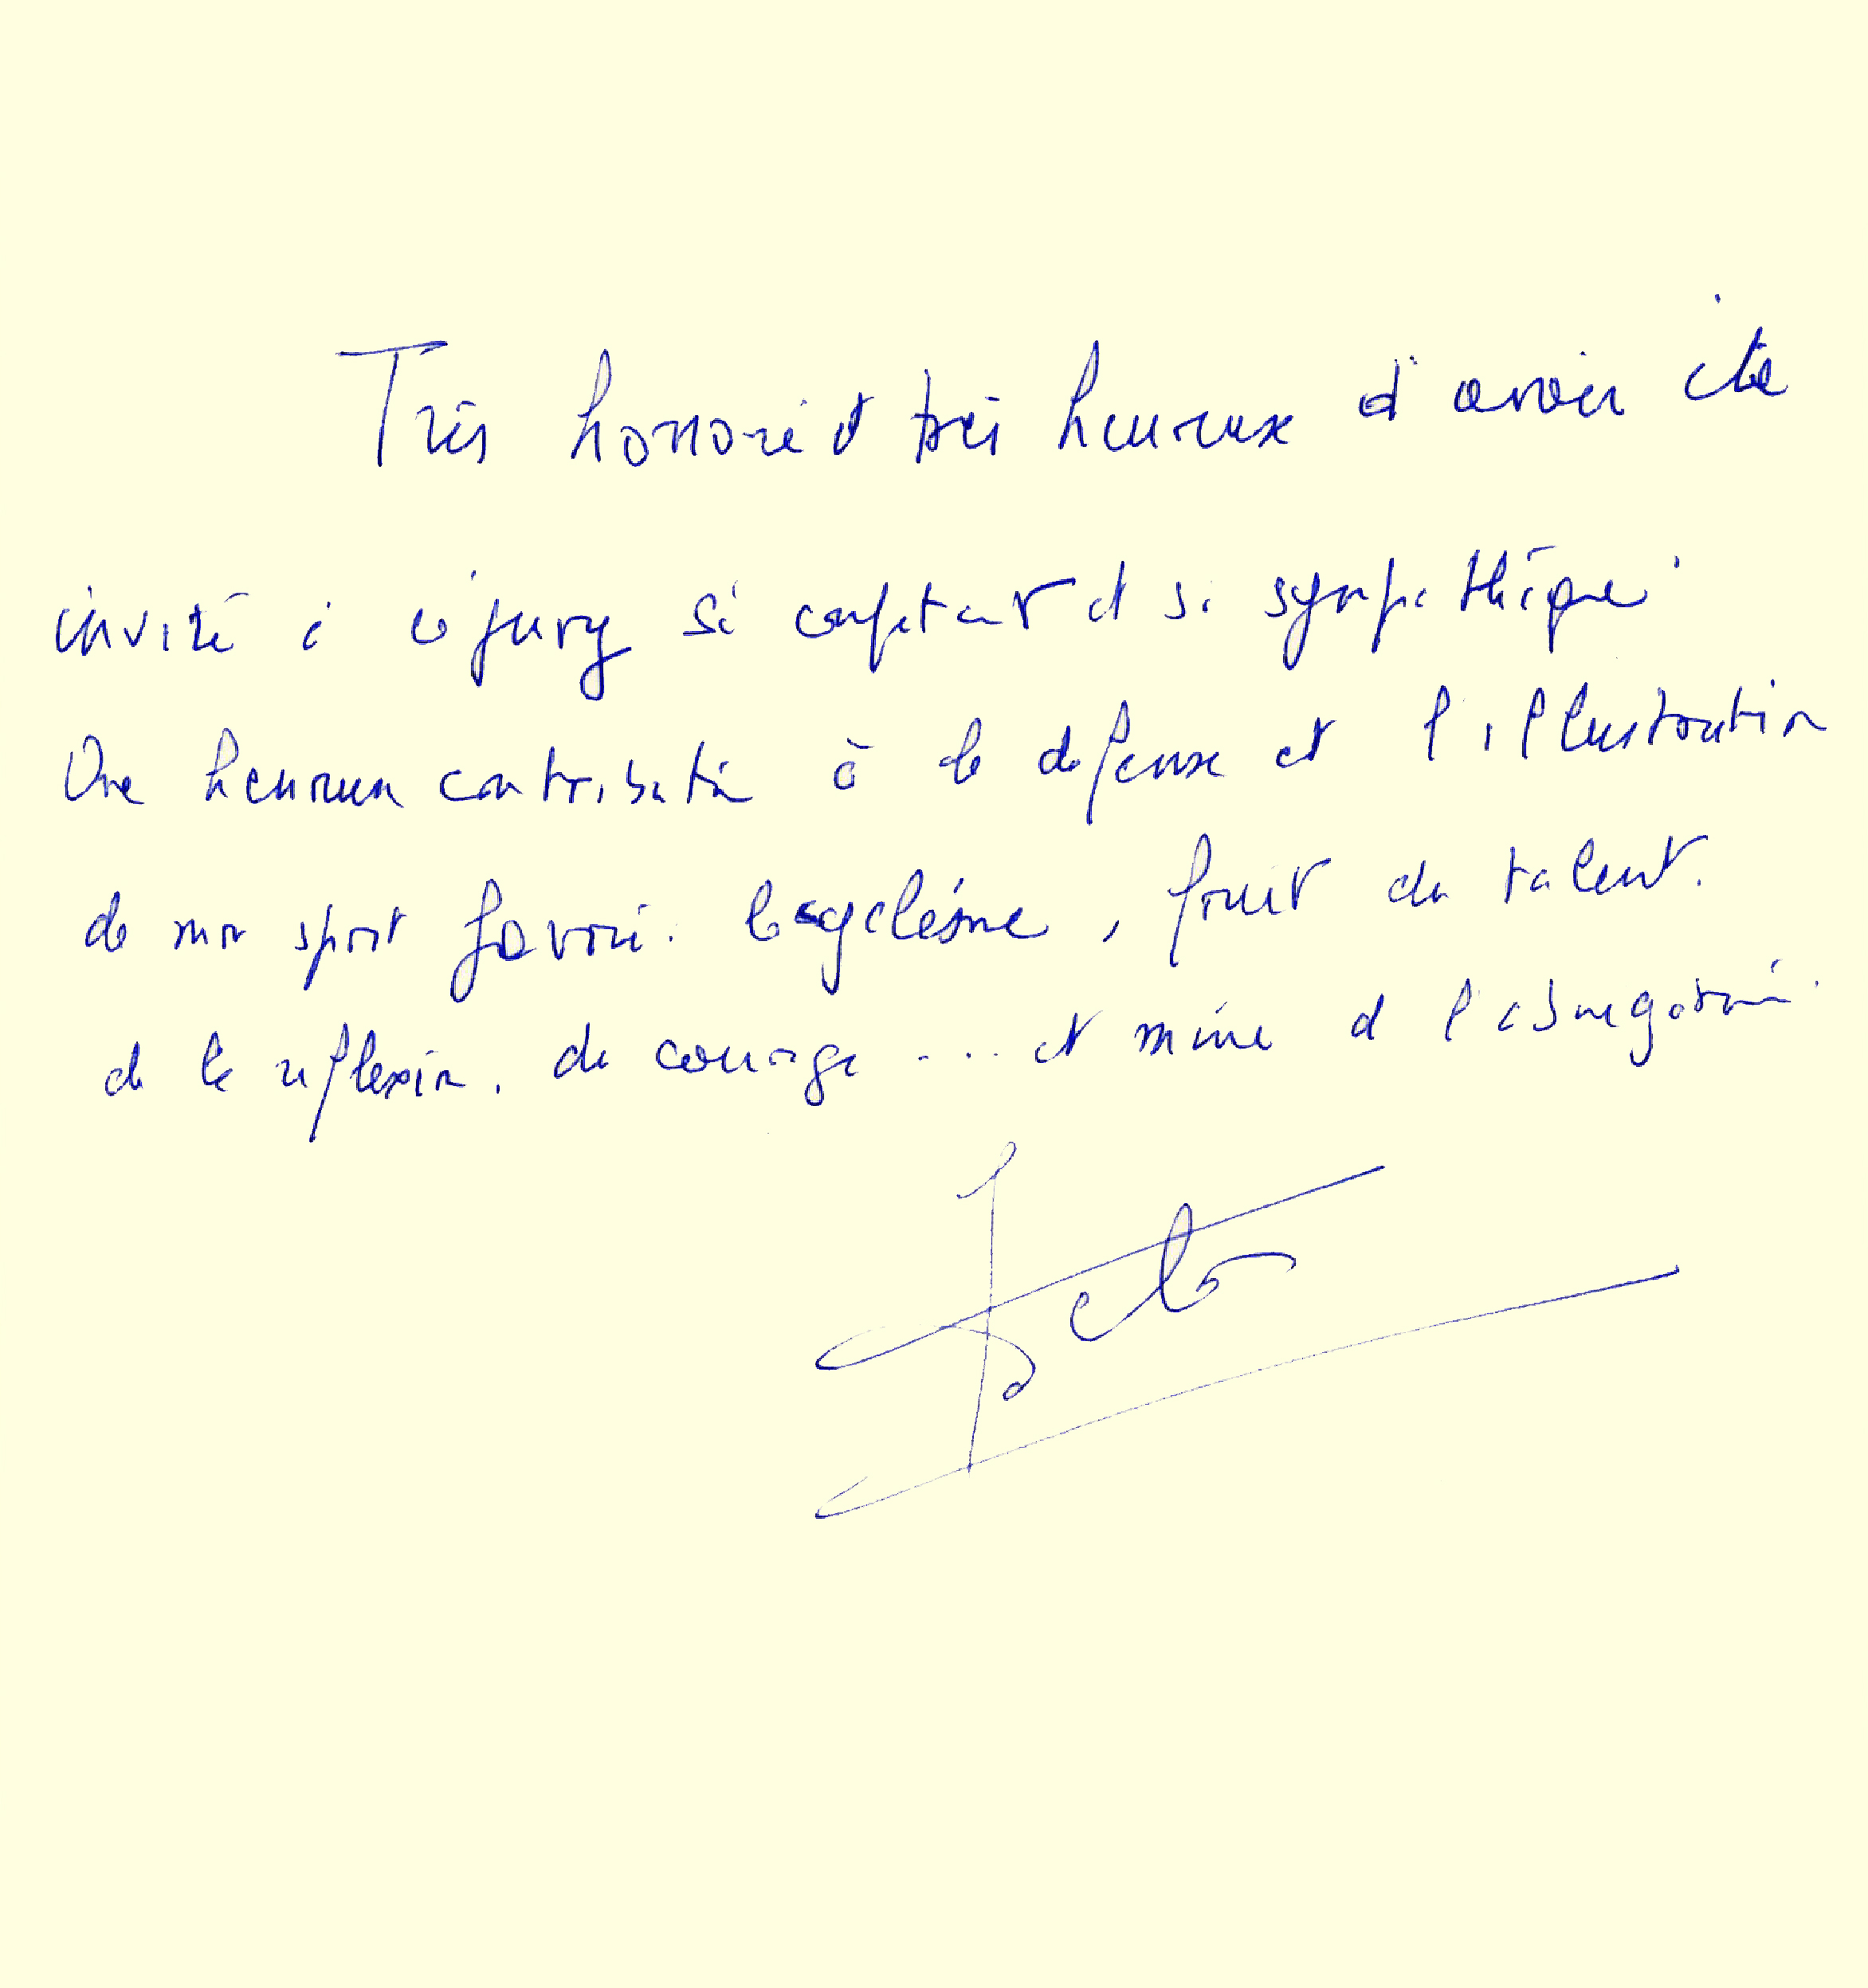 Très honoré et très heureux d'avoir été
invité à ce jury si compétent et si sympathique.
Une heureuse contribution à la défense et l'illustration
de mon sport favori. le cyclisme, fruit du talent.
de la réflexion. du courage .... et même de l'abnégation.